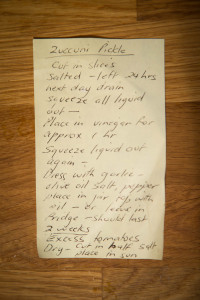 Zuccuni Pickle
Cut in slices
Salted - left 24 hrs
next day drain
squeeze all liquid
out —
Place in vinegar for
approx 1 hr
Squeeze liquid out
again —
Dress with garlic -
olive oil salt pepper
place in jar top with
oil - or leave in
fridge - should last
2 weeks
Excess tomatoes
Dry - cut in half salt
place in sun